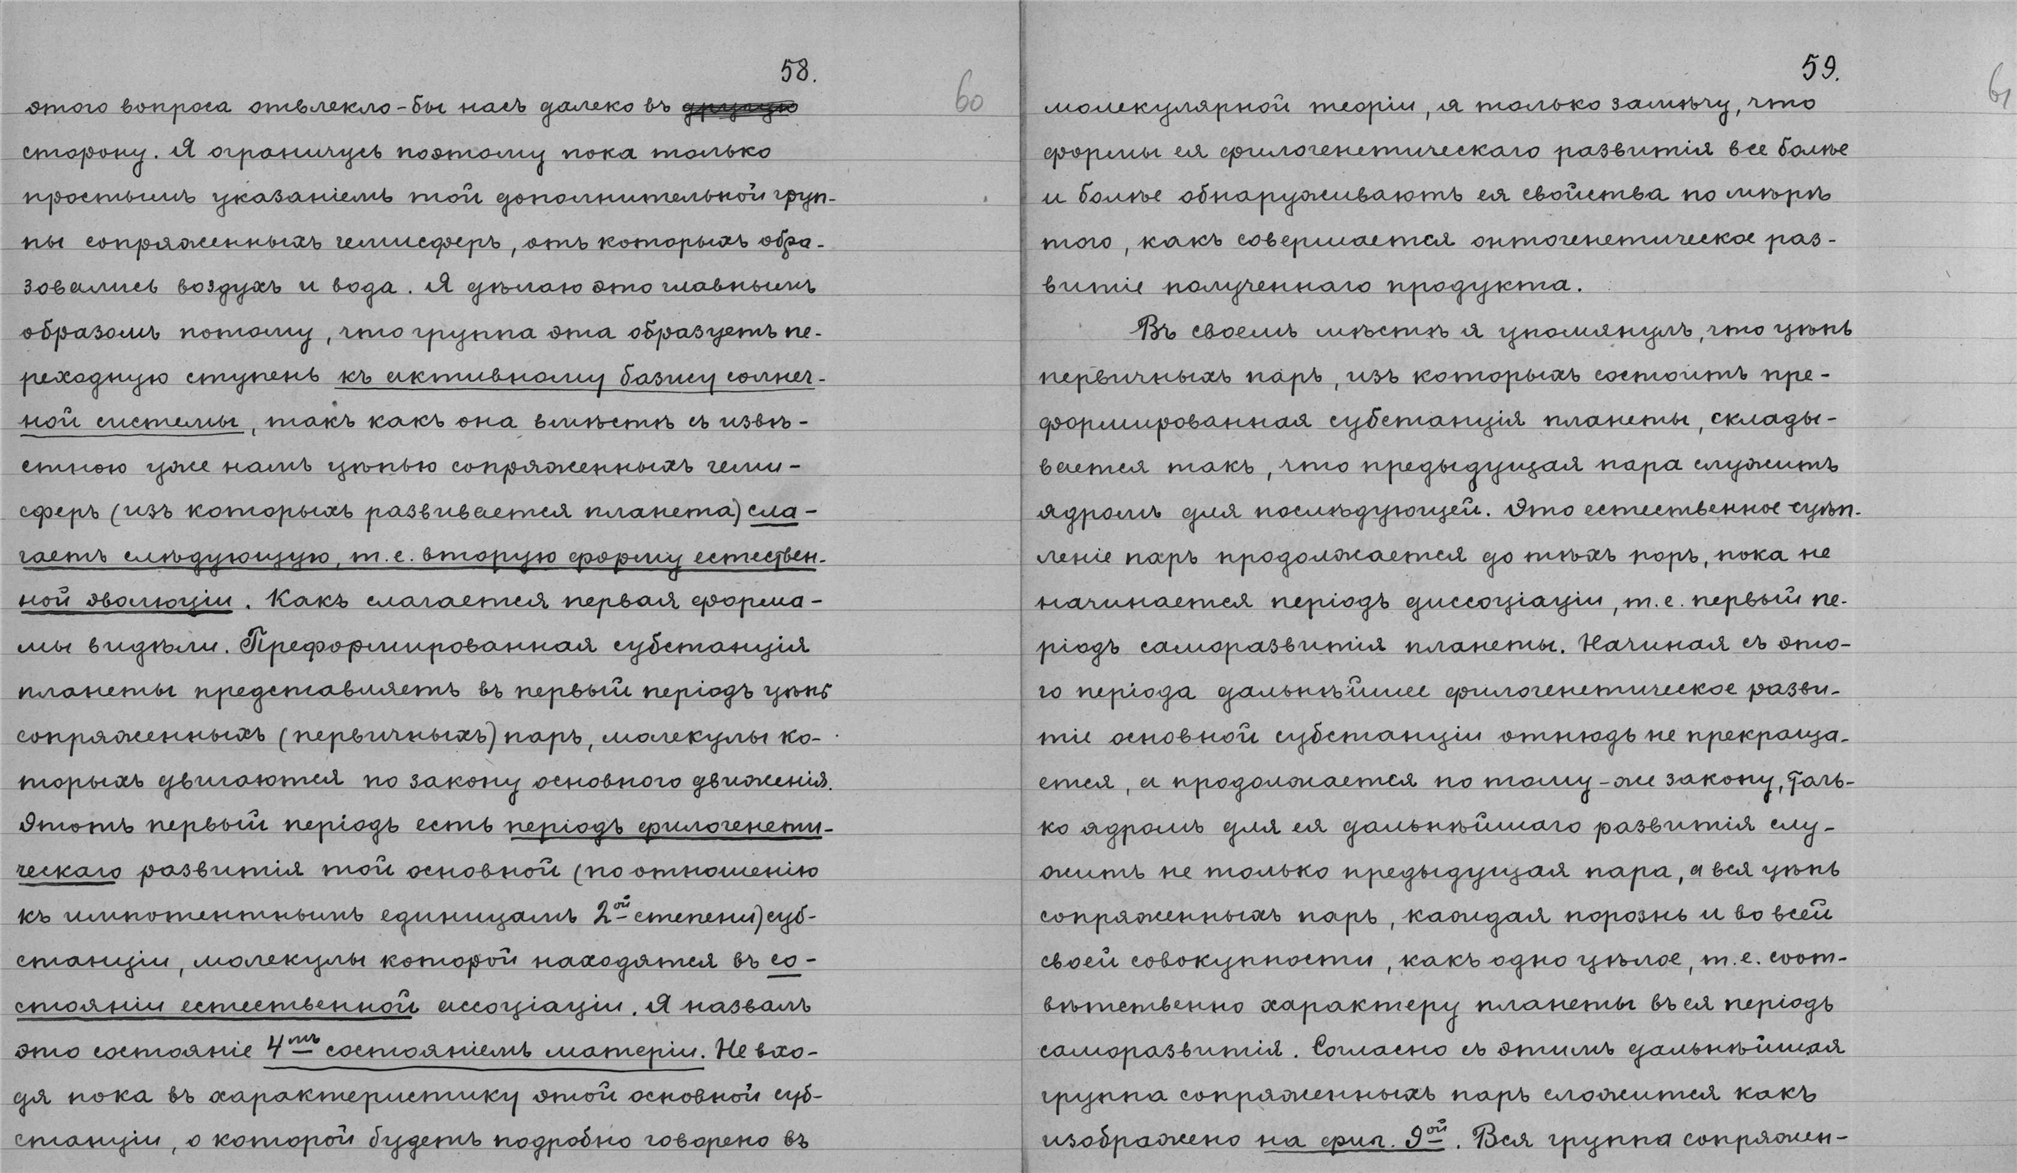 58.
этого вопроса отвлекло-бы насъ далеко въ другую
сторону. Я ограничусь поэтому пока только
простымъ указаніемъ той дополнительной груп-
пы сопряженныхъ гемисферъ, отъ которыхъ обра-
зовались воздухъ и вода. Я дѣлаю это главнымъ
образомъ потому, что группа эта образуетъ пе-
реходную ступень къ активному базису солнеч-
ной системы, такъ какъ она вмѣстѣ съ извѣ-
стною уже намъ цѣпью сопряженныхъ геми-
сферъ (изъ которыхъ развивается планета) сла-
гаетъ слѣдующую, т.е. вторую форму естествен-
ной эволюціи. Какъ слагается первая форма-
мы видѣли. Преформированная субстанція
планеты представляетъ въ первый періодъ цѣпь
сопряженныхъ (первичныхъ) паръ, молекулы ко-
торыхъ двигаются по закону основного движенія.
Этотъ первый періодъ есть періодъ филогенети-
ческаго развитія той основной (по отношенію
къ импотентнымъ единицамъ 2ой степени) суб-
станціи, молекулы которой находятся въ со-
стояніи естественной ассоціаціи. Я назвалъ
это состояніе 4мъ состояніемъ матеріи. Не вхо-
дя пока въ характеристику этой основной суб-
станціи, о которой будетъ подробно говорено въ
60
59.
молекулярной теоріи, я только замѣчу, что
формы ея филогенетическаго развитія все болѣе
и болѣе обнаруживаютъ ея свойства по мѣрѣ
того, какъ совершается онтогенетическое раз-
витіе полученнаго продукта.
Въ своемъ мѣстѣ я упомянулъ, что цѣпь
первичныхъ паръ, изъ которыхъ состоитъ пре-
формированная субстанція планеты, склады-
вается такъ, что предыдущая пара служитъ
ядромъ для послѣдующей. Это естественное сцѣп-
леніе паръ продолжается до тѣхъ поръ, пока не
начинается періодъ диссоціаціи, т.е. первый пе-
ріодъ саморазвитія планеты. Начиная съ это-
го періода дальнѣйшее филогенетическое разви-
тіе основной субстанціи отнюдь не прекраща-
ется, а продолжается по тому-же закону, толь-
ко ядромъ для ея дальнѣйшаго развитія слу-
житъ не только предыдущая пара, а вся цѣпь
сопряженныхъ паръ, каждая порознь и во всей
своей совокупности, какъ одно цѣлое, т.е. соот-
вѣтственно характеру планеты въ ея періодъ
саморазвитія. Согласно съ этимъ дальнѣйшая
группа сопряженныхъ паръ сложится какъ
изображено на фиг. 9ой. Вся группа сопряжен-
61